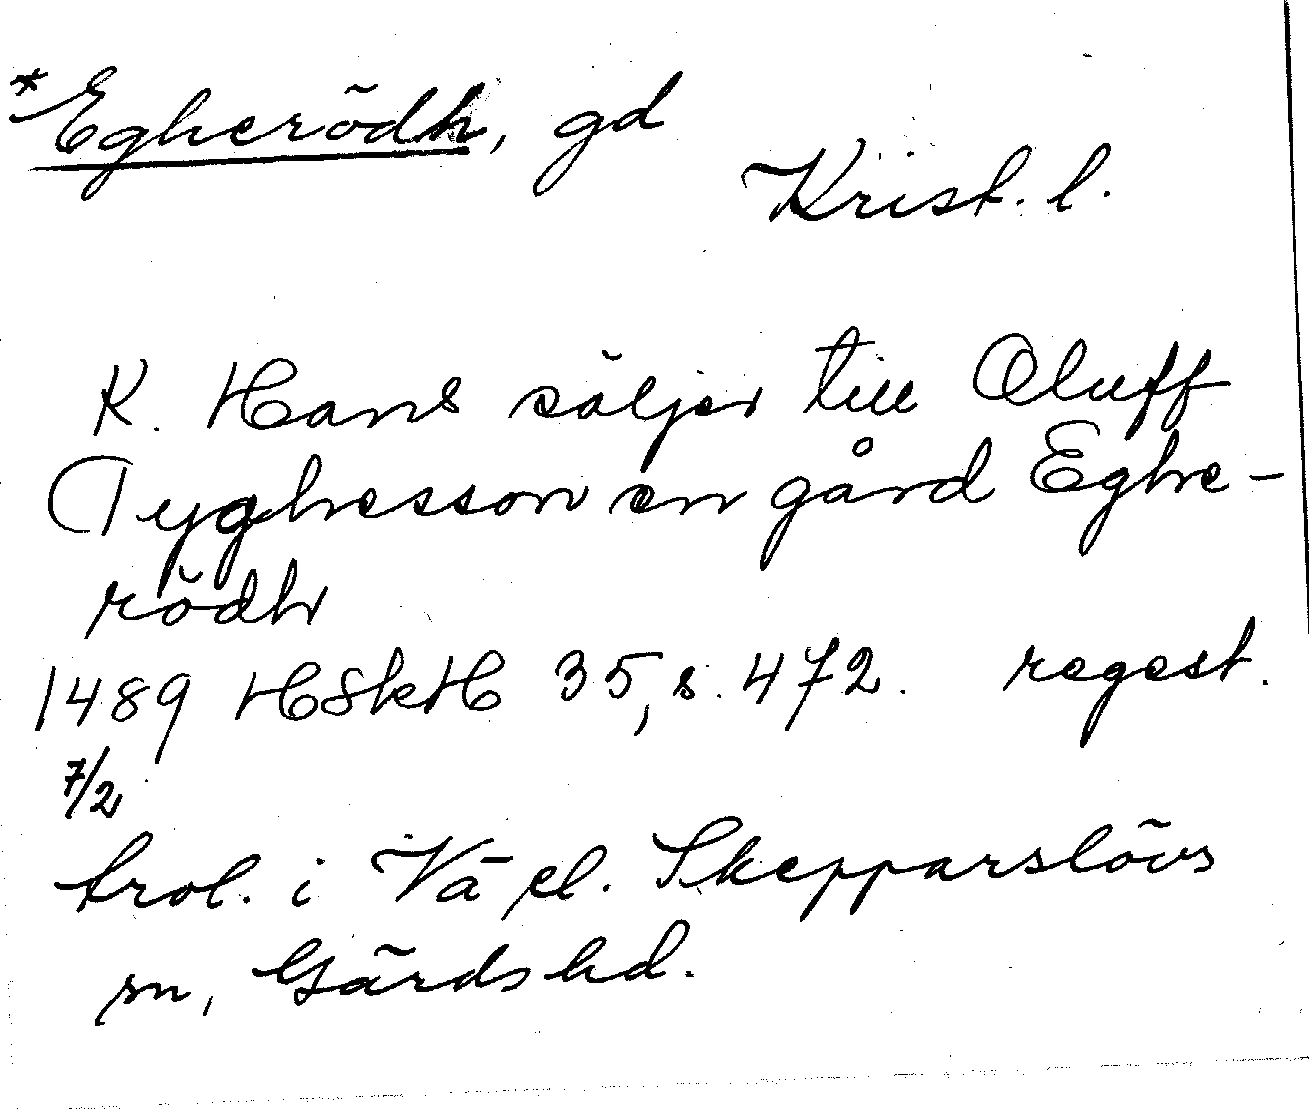 *Egherödh, gd
Krist. l.
K. Hans säljer till Oluff
Tyghesson en gård Eghe-
rödh
1489 HSkH 35, s. 472. regest.
7/2
trol. i Vä el. Skepparslövs
sn, Gärds hd.